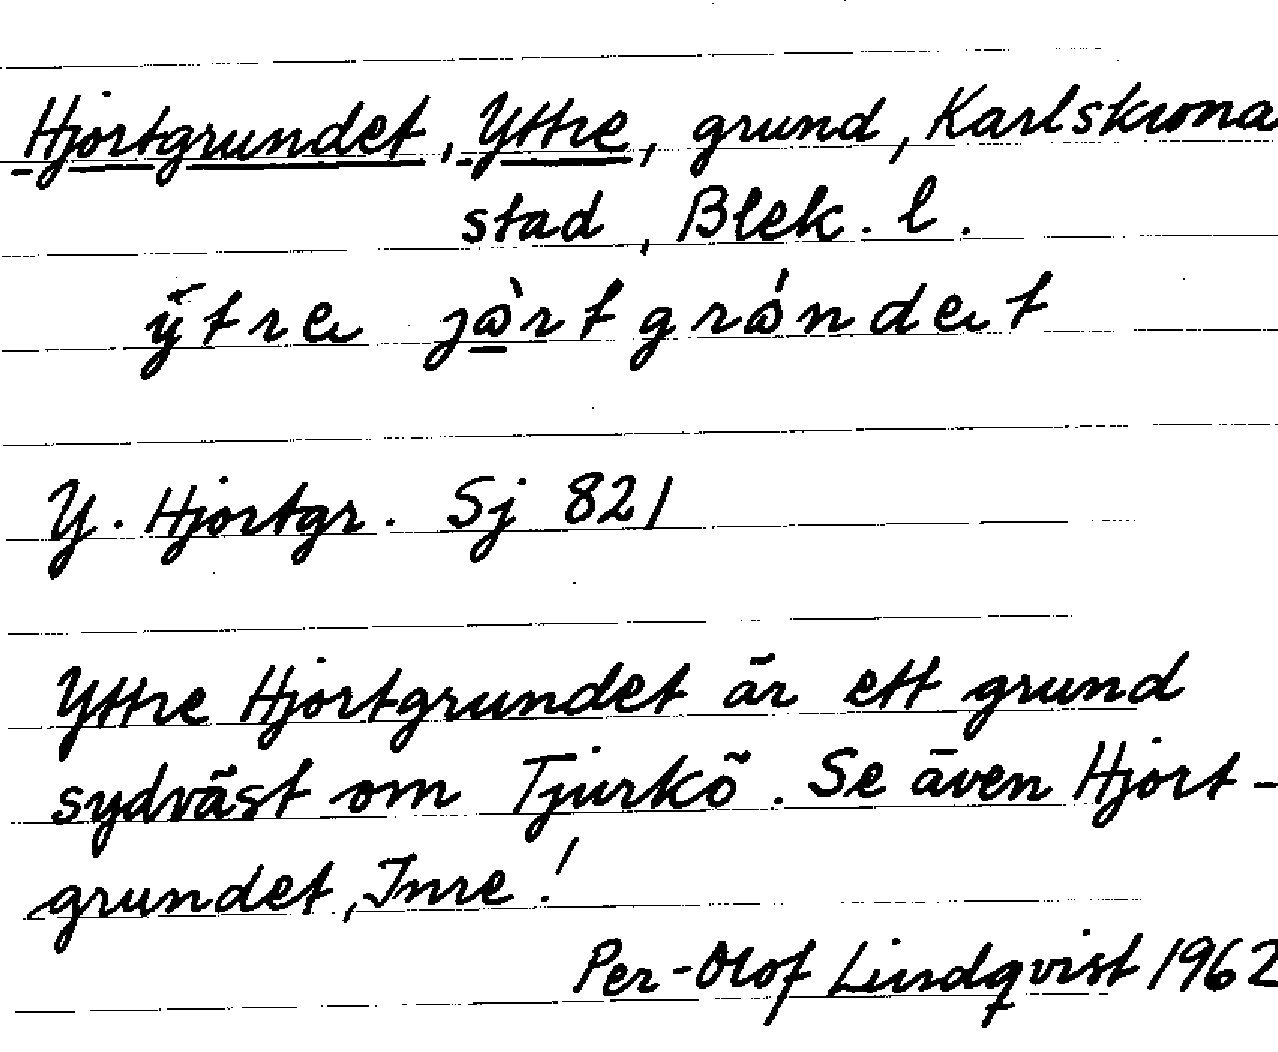 Hjortgrundet, Yttre, grund, Karlskrona
stad, Blek. l.
Y. Hjortgr. Sj 821
Yttre Hjortgrundet är ett grund
sydväst om Tjurkö. Se även Hjort-
grundet, Inre!
Per-Olof Lindqvist 1962